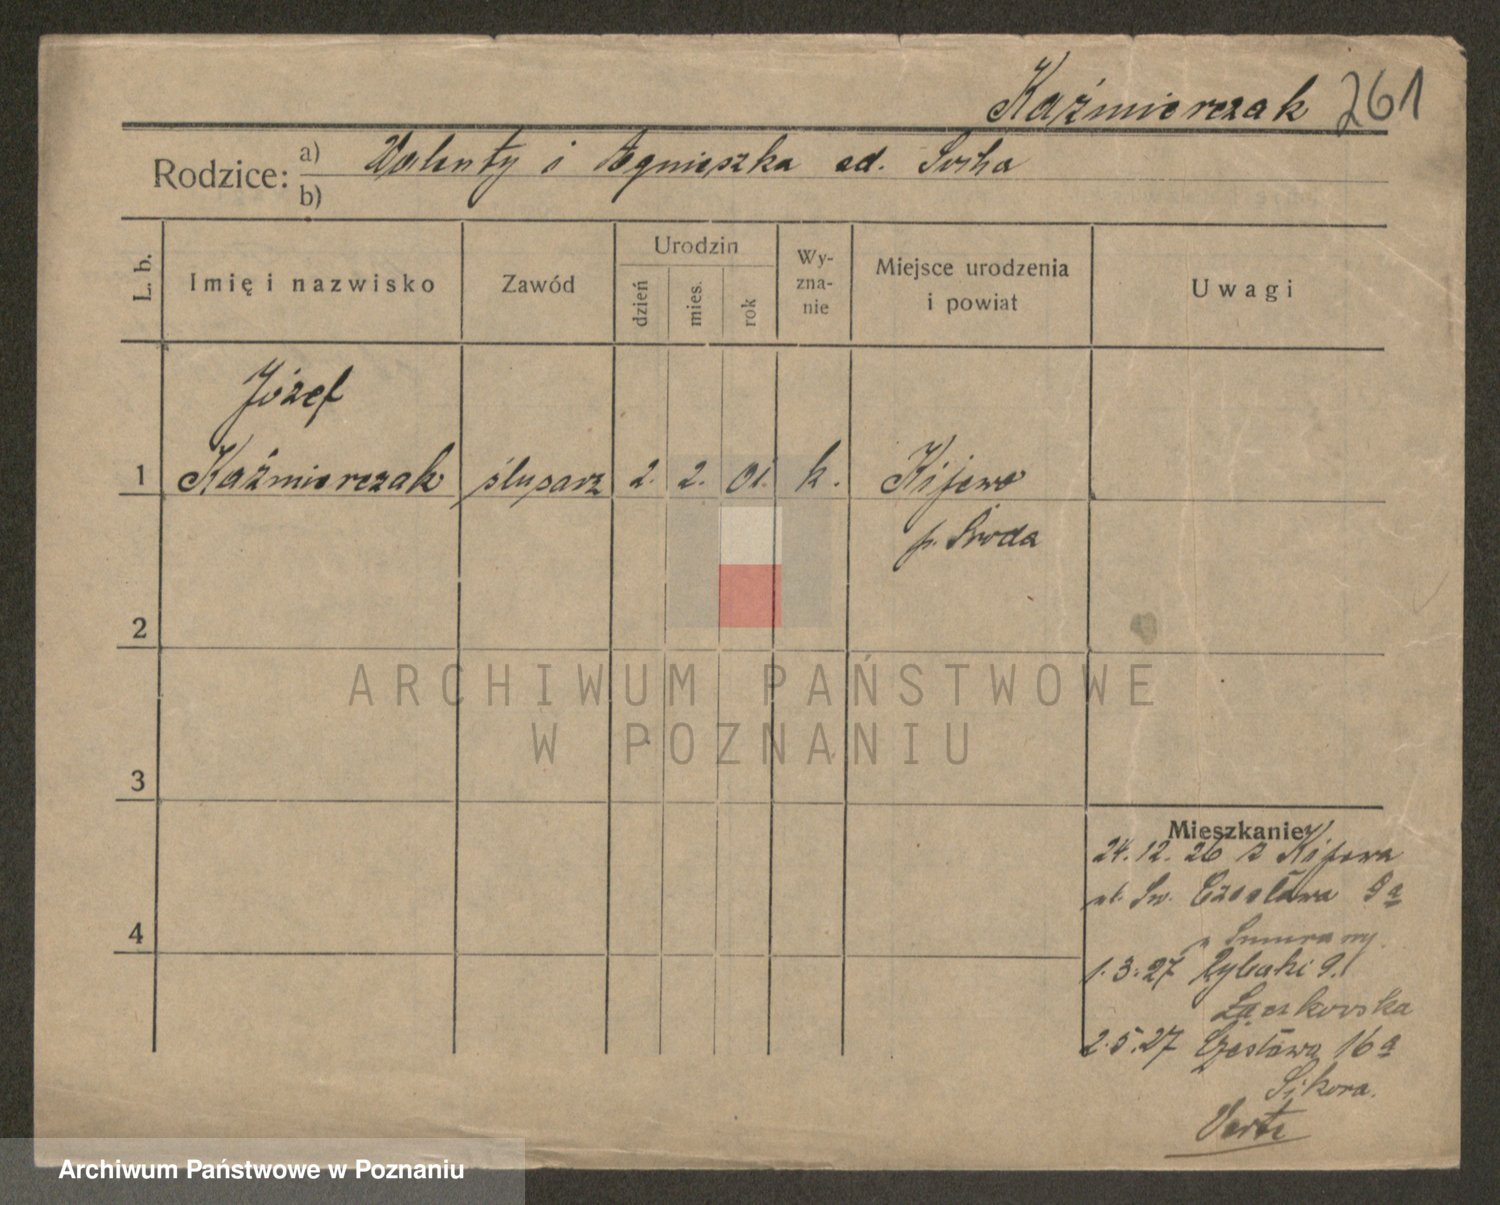 Kaźmierczak 261
Rodzice: a) Walenty i Agnieszka od. Socha
b)
L. b.
Imię i nazwisko
Zawód
Urodzin
dzień
mies.
rok
Wy-
zna-
nie
Miejsce urodzenia
i powiat
Uwagi
Józef
1 Kaźmierczak ślusarz 2. 2. 01. k. Kijewo
p. Środa
2
3
4
ARCHIWUM PAŃSTWOWE
W POZNANIU
Mieszkanie
24. 12. 26 z Kijewa
ul. Św. Czesława 9a
1. 3. 27 Rybaki 9.
2. 5. 27 Czesława 16a
Sikora.
Verte
Archiwum Państwowe w Poznaniu